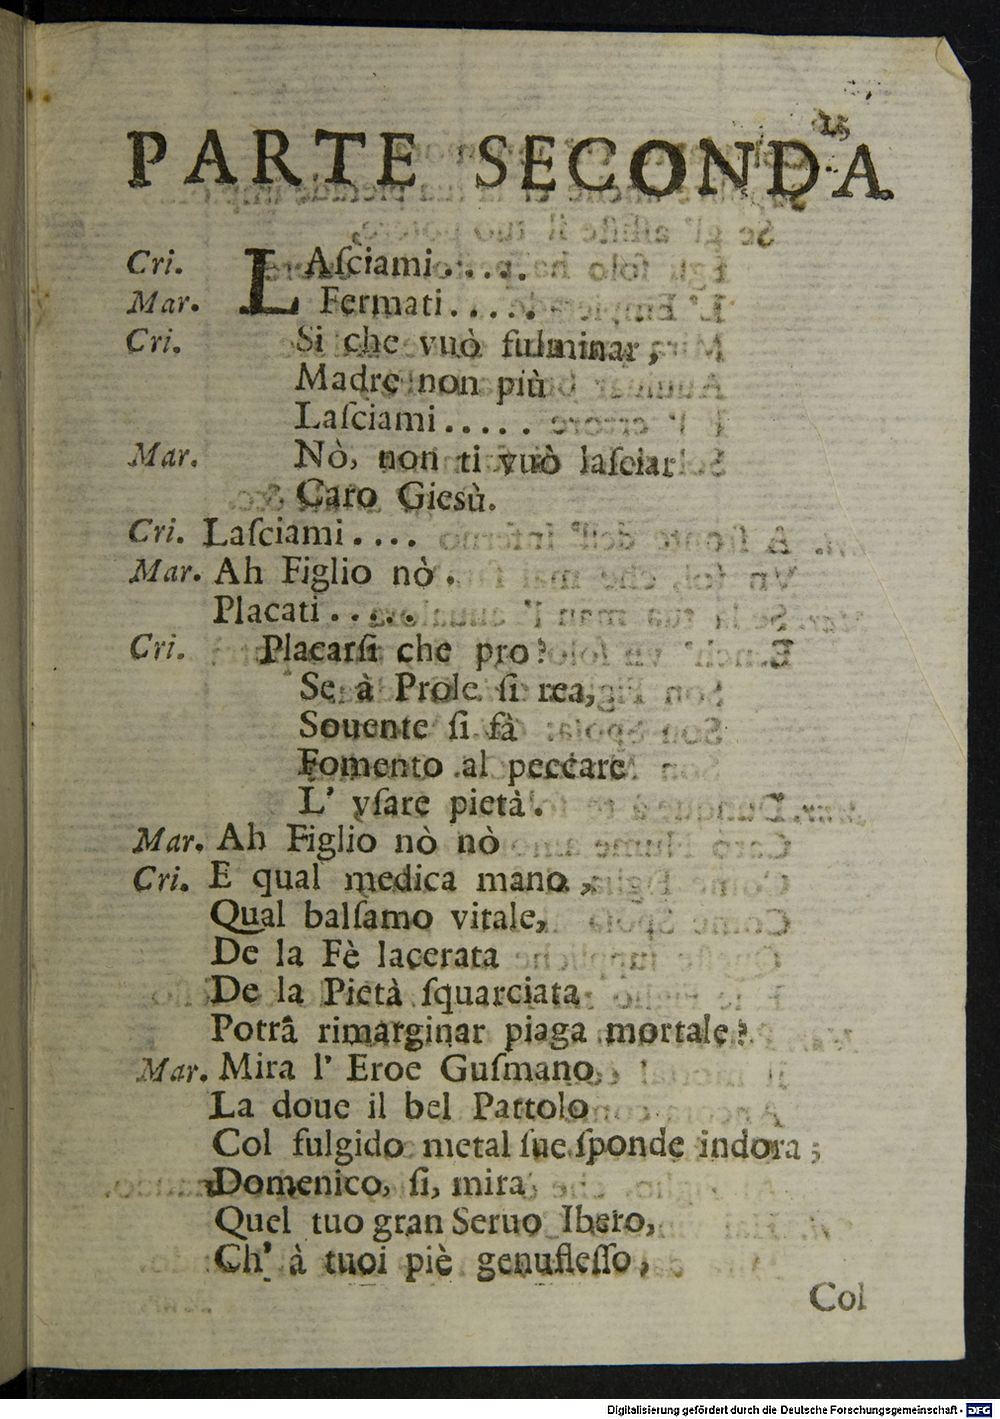 15
PARTE SECONDA
Cri. LAſciami.....
Mar. Fermati.....
Cri. Si che vuò fulminar,
Madre non più
Laſciami.....
Mar. Nò, non ti vuò laſciar
Caro Giesù.
Cri. Laſciami....
Mar. Ah Figlio nò.
Placati.....
Cri. Placarſi che pro?
Se à Prole ſi rea,
Souente ſi fà
Fomento al peccare
L' vſare pietà.
Mar. Ah Figlio nò nò
Cri. E qual medica mano,
Qual balſamo vitale,
De la Fè lacerata
De la Pietà ſquarciata
Potrà rimarginar piaga mortale?
Mar. Mira l' Eroe Guſmano,
La doue il bel Pattolo
Col fulgido metal ſue ſponde indora;
Domenico, ſi, mira
Quel tuo gran Seruo Ibero,
Ch' à tuoi piè genufleſſo,
Col
Digitalisierung gefördert durch die Deutsche Forschungsgemeinschaft - DFG